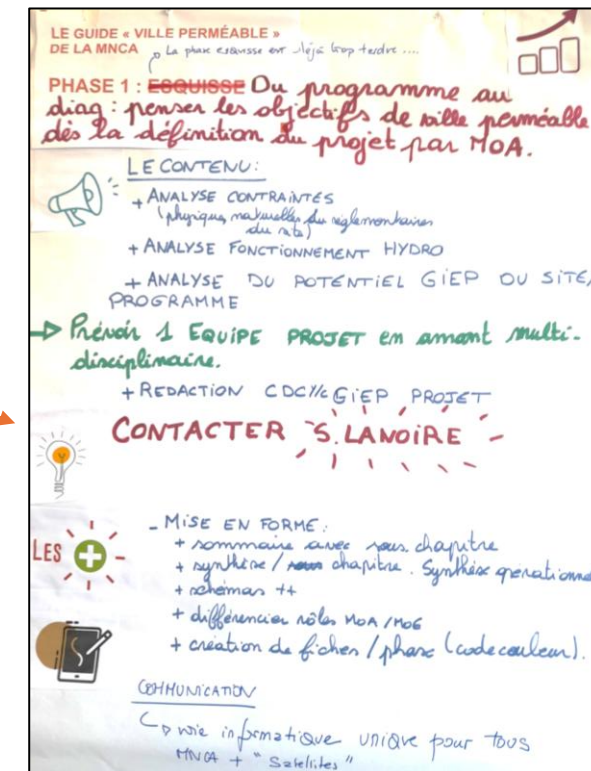 LE GUIDE « VILLE PERMÉABLE »
DE LA MNCA
La phase esquisse est déjà trop tardive ....
PHASE 1 : ESQUISSE Du programme au
diag : penser les objectifs de ville perméable
dès la définition du projet par MOA.
LE CONTENU :
+ ANALYSE CONTRAINTES
(physiques, naturelles, réglementaires
du site)
+ ANALYSE FONCTIONNEMENT HYDRO
+ ANALYSE DU POTENTIEL GIEP DU SITE,
PROGRAMME
Prévoir 1 EQUIPE PROJET en amont multi-
disciplinaire.
+ REDACTION GIEP PROJET
CONTACTER S. LANOIRE
LES +
- MISE EN FORME :
+ sommaire avec sous chapitre
+ synthèse / chapitre. Synthèse opérationnel
+ schémas ++
+ différencier rôles MOA / MOE
+ création de fiches / phase (code couleur).
COMMUNICATION
voie informatique unique pour tous
MNCA + "Satellites"